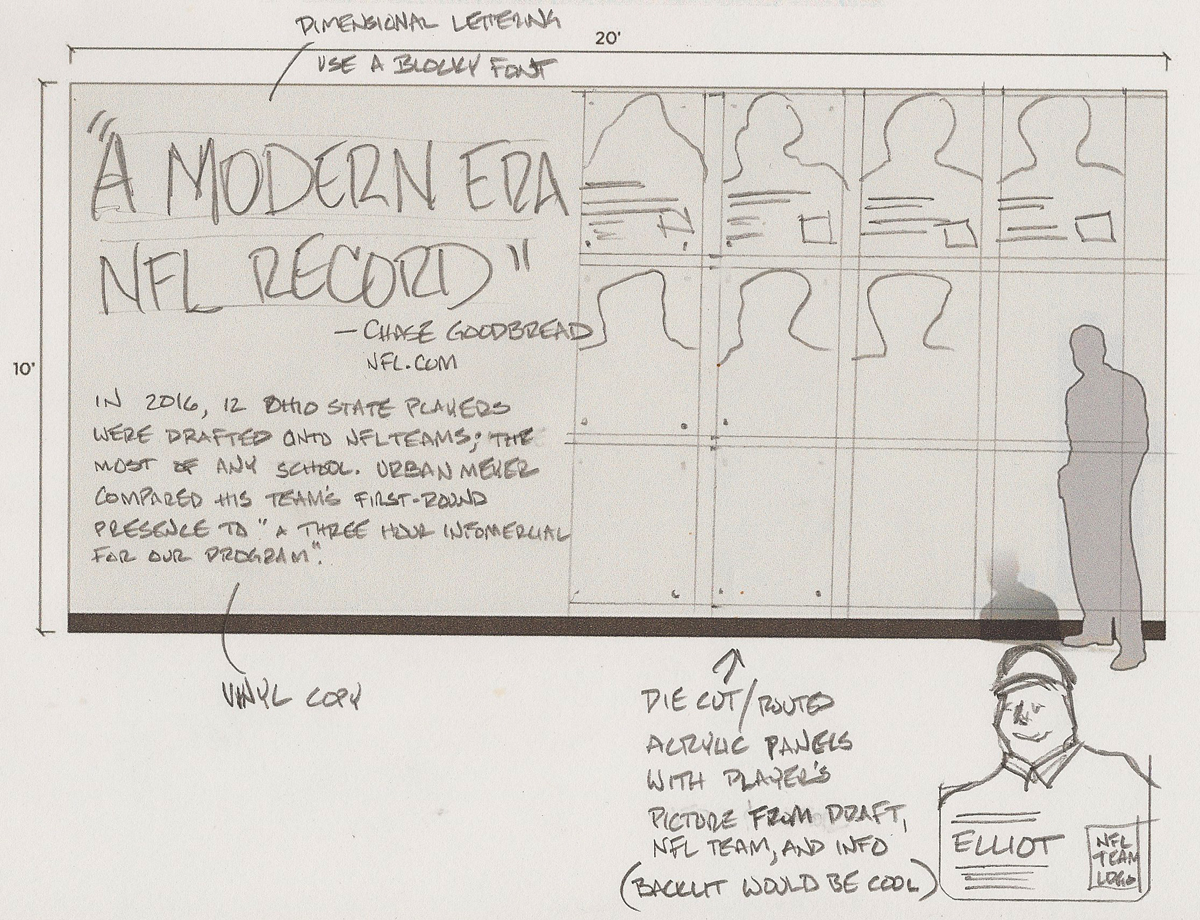 DIMENSIONAL LETTERING
USE A BLOCKY FONT
20'
10'
"A MODERN ERA
NFL RECORD"
— CHASE GOODBREAD
NFL.COM
IN 2016, 12 OHIO STATE PLAYERS
WERE DRAFTED ONTO NFL TEAMS; THE
MOST OF ANY SCHOOL. URBAN MEYER
COMPARED HIS TEAM'S FIRST-ROUND
PRESENCE TO "A THREE HOUR INFOMERCIAL
FOR OUR PROGRAM".
VINYL COPY
DIE CUT/ROUTED
ACRYLIC PANELS
WITH PLAYER'S
PICTURE FROM DRAFT,
NFL TEAM, AND INFO
(BACKLIT WOULD BE COOL)
ELLIOT
NFL
TEAM
LOGO